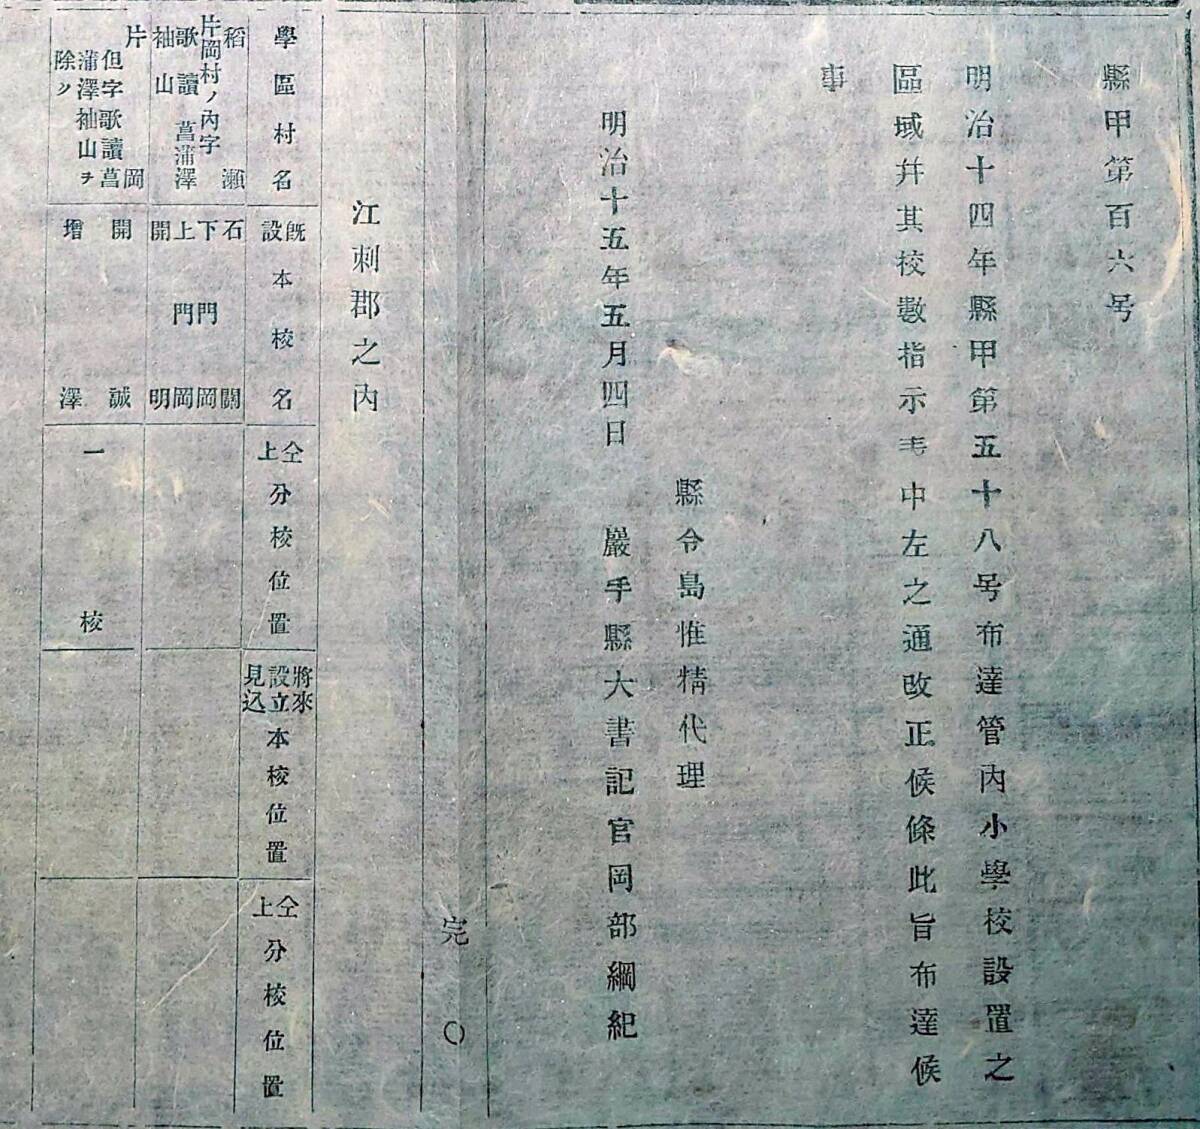 縣甲第百六号
明治十四年縣甲第五十八号布達管内小學校設置之
區域幷其校數指示
中左之通改正候條此旨布達候
事
縣令島惟精代理
明治十五年五月四日 巖手縣大書記官岡部綱紀
完 〇
江刺郡之内
學區村名
既設本校名
仝上分校位置
將來設立見込本校位置
仝上分校位置
稻瀬
片岡村ノ内字
歌讀 菖蒲澤
袖山
石關
下門岡
上門岡
開明
片岡
但字歌讀菖
蒲澤袖山ヲ
除ク
開誠
增澤
一校